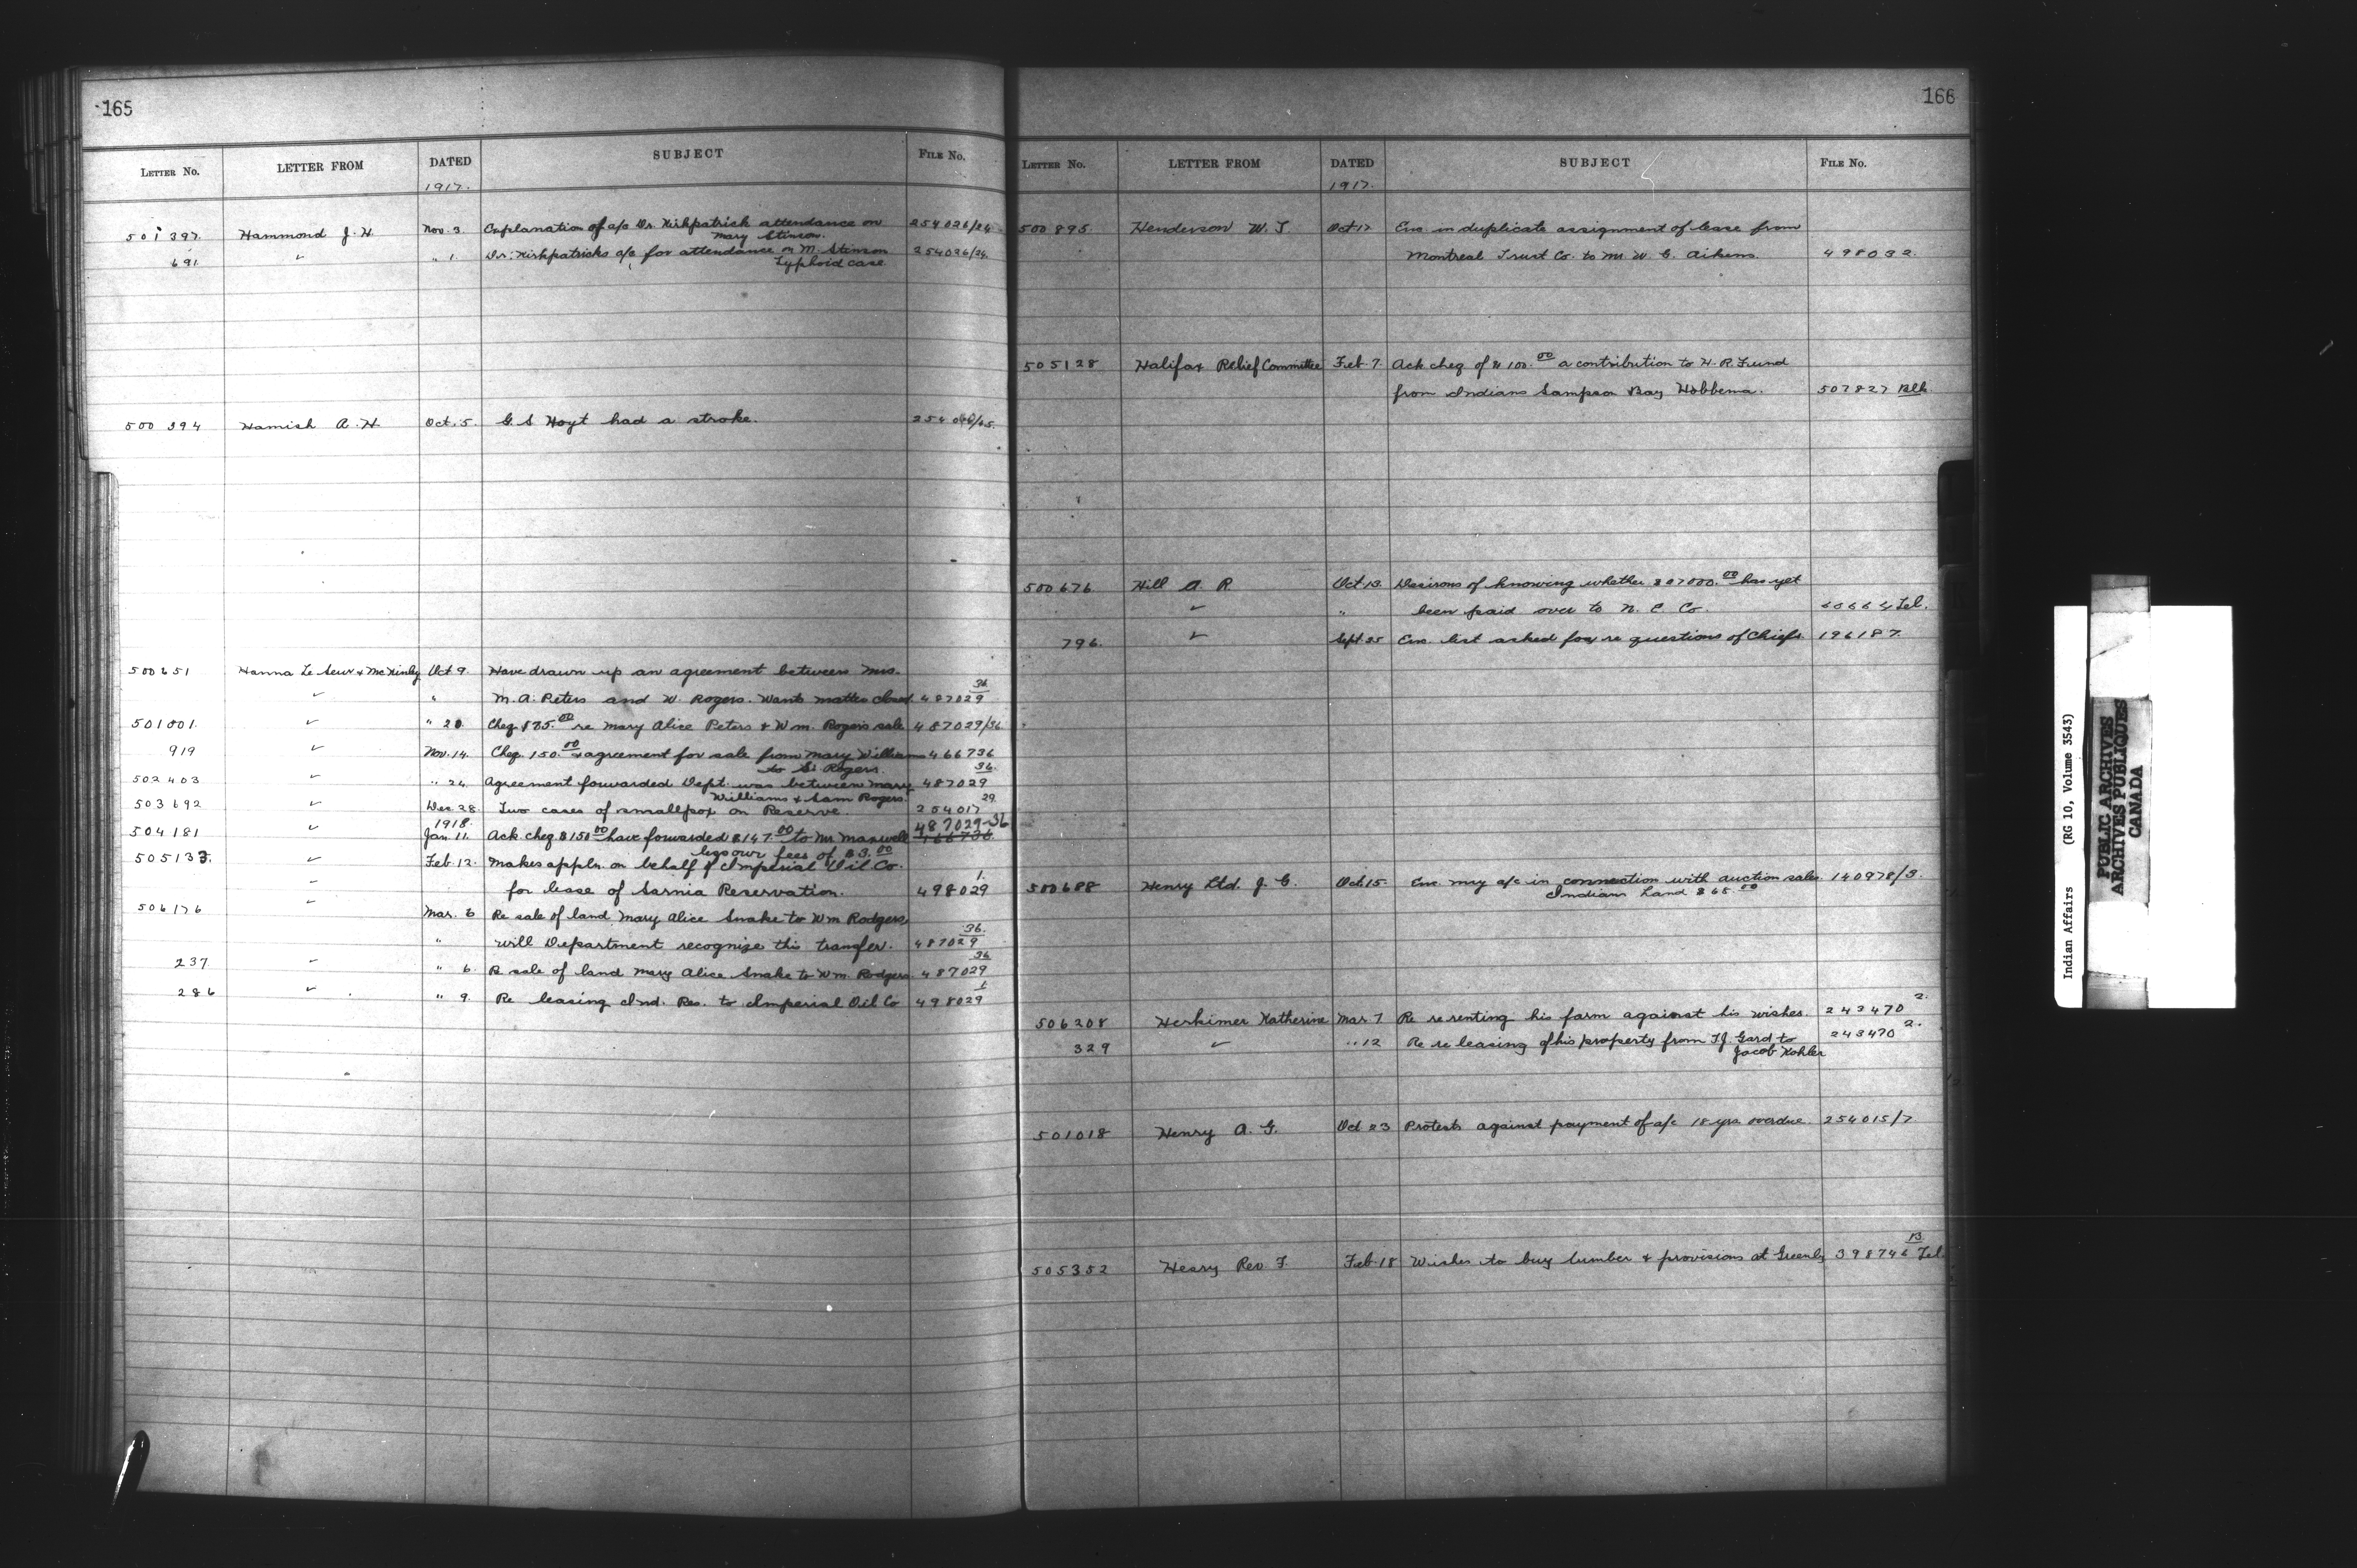 165
LETTER No. LETTER FROM DATED SUBJECT FILE No.
1917.
501397 Hammond J. H. Nov. 3. Explanation of a/c Dr. Kirkpatrick attendance on 254026/24
Mary Stinson.
691 ✓ " 1. Dr. Kirkpatricks a/c for attendance on M. Stinson 254026/24.
Typhoid case
500394 Hamish A. H. Oct. 5. G. S Hoyt had a stroke. 254
500651 Hanna Le Seur & McKinley Oct 9. Have drawn up an agreement between Mrs.
✓ " M. A. Peters and W. Rogers. Wants matter closed. 487029 36
501001. ✓ " 20 Cheq. $75.00 re Mary Alice Peters & Wm. Rogers sale 487029/36
919 ✓ Nov. 14. Cheq. 150.00 & agreement for sale from Mary Williams 466736
to S. Rogers.
502403 ✓ " 24. Agreement forwarded Dept. was between Mary 487029 36.
Williams & Sam Rogers.
503692 ✓ Dec. 28. Two cases of smallpox on Reserve. 254017 29
1918.
504181 ✓ Jan. 11. Ack. cheq. $150.00 have forwarded $147.00 to Mr. Maxwell 487029-36 466736
less our fees of $3.00
505133. ✓ Feb. 12. Makes appln. on behalf of Imperial Oil Co.
✓ for lease of Sarnia Reservation. 498029 1.
506176 ✓ Mar. 6 Re sale of land Mary Alice Snake to Wm Rodgers
" will Department recognize this transfer. 487029 36.
237 ✓ " 6. R sale of land Mary Alice Snake to Wm. Rodgers 487029 36
286 ✓ " 9. Re leasing Ind. Res. to Imperial Oil Co 498029 1
166
LETTER No. LETTER FROM DATED SUBJECT FILE No.
1917.
500895. Henderson W. T. Oct 17 Enc in duplicate assignment of lease from
Montreal Trust Co. to Mr W. G. Aikens. 498032.
505128 Halifax Relief Committee Feb. 7. Ack cheq of $100.00 a contribution to H. R. Fund
from Indians Sampson Bay Hobbema. 507827 Blk
500676 Hill A. R. Oct. 13. Desirous of knowing whether has yet
✓ " been paid over to N. C. Co. Tel.
796. ✓ Sept. 25 Enc. list asked for re questions of Chiefs 196187.
500688 Henry Ltd. J. C. Oct. 15. Enc. my a/c in connection with auction sales 140978/3.
Indians Land $65.00
506208 Herkimer Katherine Mar. 7 Re re renting his farm against his wishes. 243470 2.
329 ✓ " 12 Re re leasing of his property from T. J. Gard to 243470 2.
Jacob Kohler
501018 Henry A. G. Oct 23 Protests against payment of a/c 18 yrs overdue. 254015/7
505352 Henry Rev F. Feb. 18 Wishes to buy lumber & provisions at Greenly 398746 13 Tel
Indian Affairs (RG 10, Volume 3543)
PUBLIC ARCHIVES
ARCHIVES PUBLIQUES
CANADA